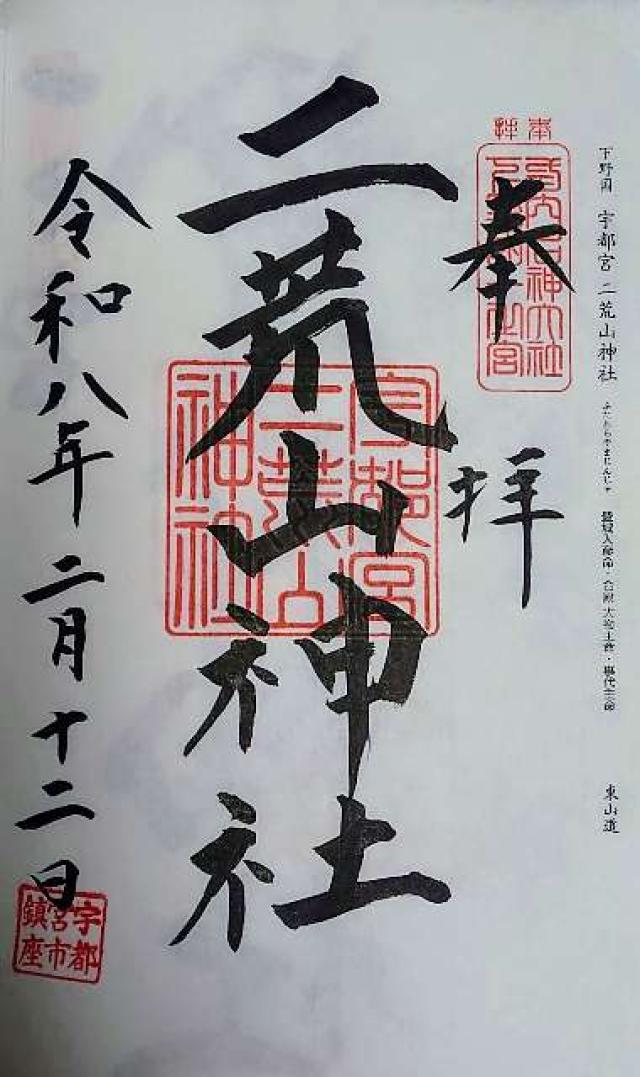 下野国 宇都宮 二荒山神社 ふたあらやまじんじゃ 豊城入彦命・合殿 大物主命・事代主命 東山道
奉拝
二荒山神社
宇都宮
二荒山
神社
令和八年二月十二日
宇都
宮市
鎮座